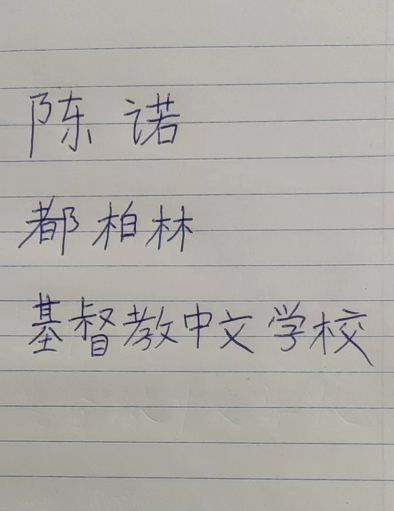 陈诺
都柏林
基督教中文学校